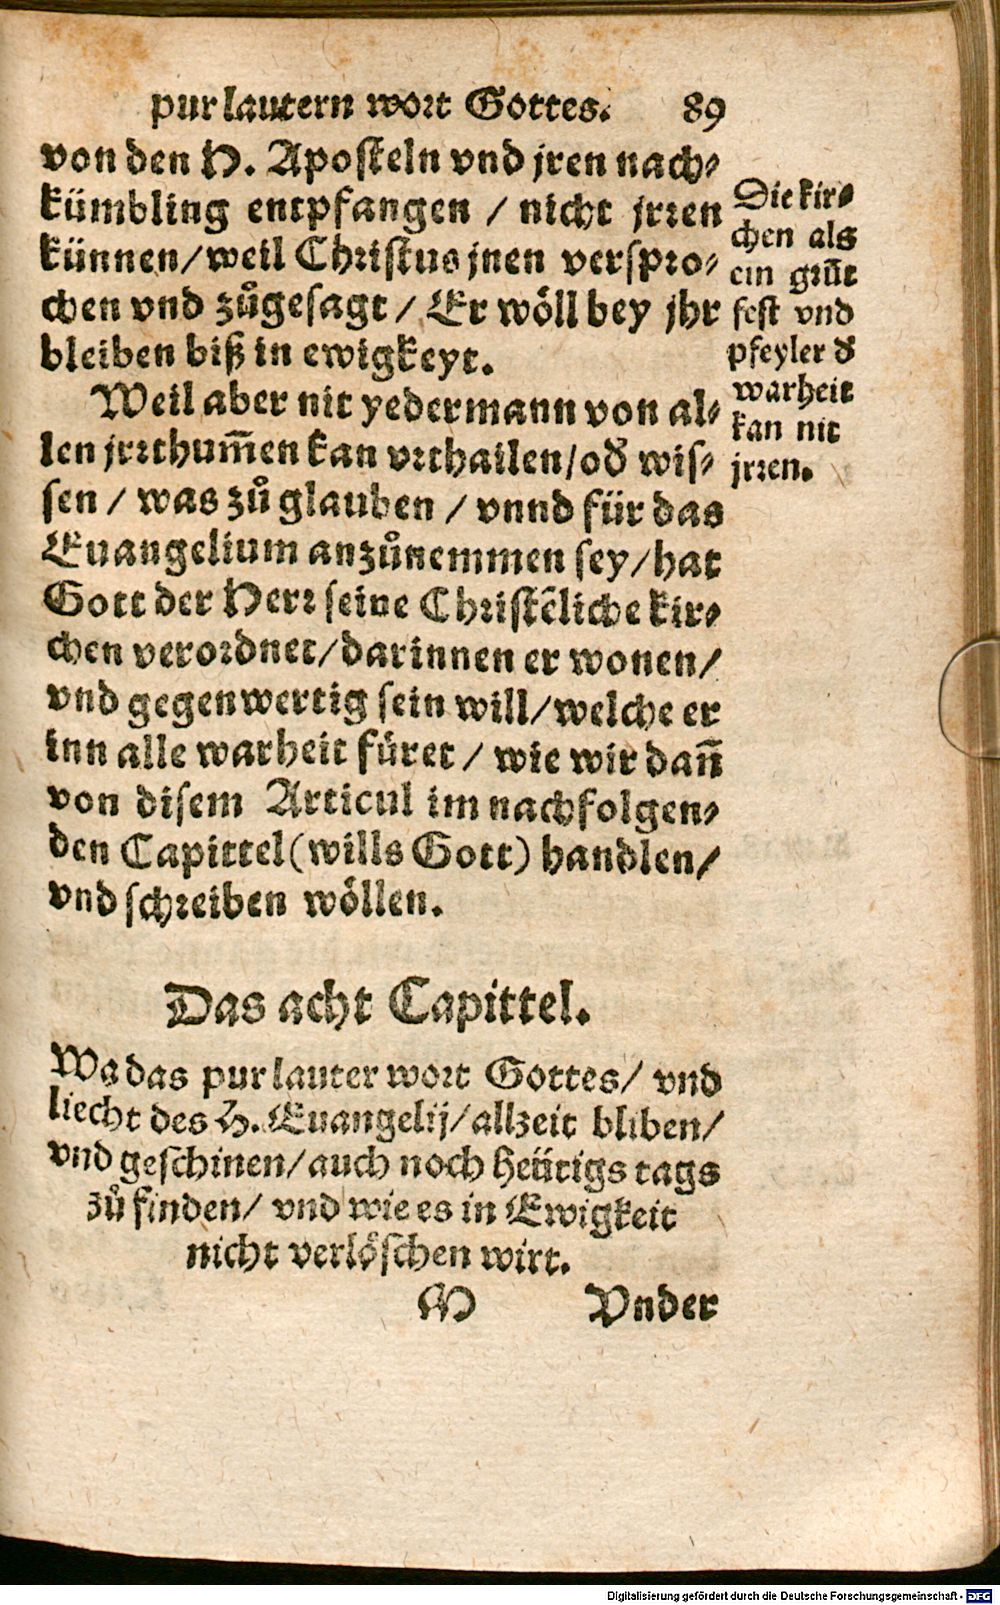 pur lautern wort Gottes. 89
von den H. Aposteln vnd jren nach⸗
kümbling entpfangen / nicht jrren
künnen/weil Christus jnen verspro⸗
chen vnd zůgesagt / Er wöll bey jhr
bleiben biß in ewigkeyt.
Weil aber nit yedermann von al⸗
len jrrthum̃en kan vrthailen/oð wis⸗
sen / was zů glauben / vnnd für das
Euangelium anzůnemmen sey/hat
Gott der Herr seine Christẽliche kir⸗
chen verordnet/darinnen er wonen/
vnd gegenwertig sein will/welche er
inn alle warheit füret / wie wir dañ
von disem Articul im nachfolgen⸗
den Capittel(wills Gott) handlen/
vnd schreiben wöllen.
Die kir⸗
chen als
ein grũt
fest vnd
pfeyler ð
warheit
kan nit
jrren.
Das acht Capittel.
Wa das pur lauter wort Gottes/ vnd
liecht des H. Euangelij/allzeit bliben/
vnd geschinen/auch noch heütigs tags
zů finden/ vnd wie es in Ewigkeit
nicht verlöschen wirt.
M Vnder
Digitalisierung gefördert durch die Deutsche Forschungsgemeinschaft - DFG